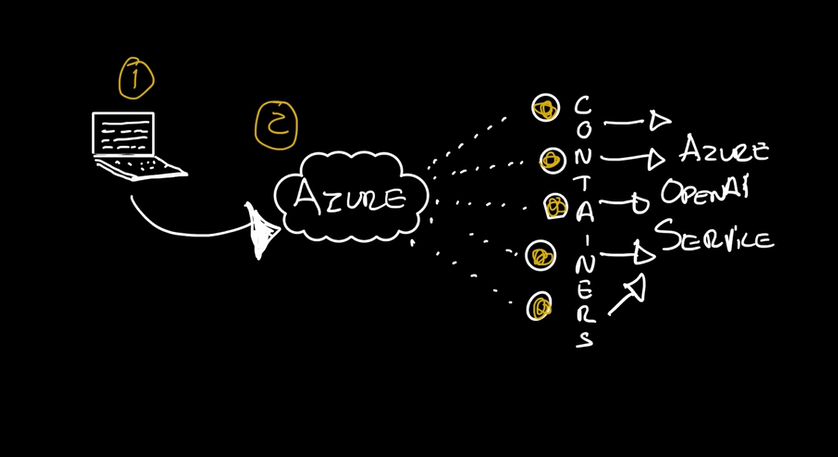 1
2
AZURE
CONTAINERS
AZURE
OPENAI
SERVICE